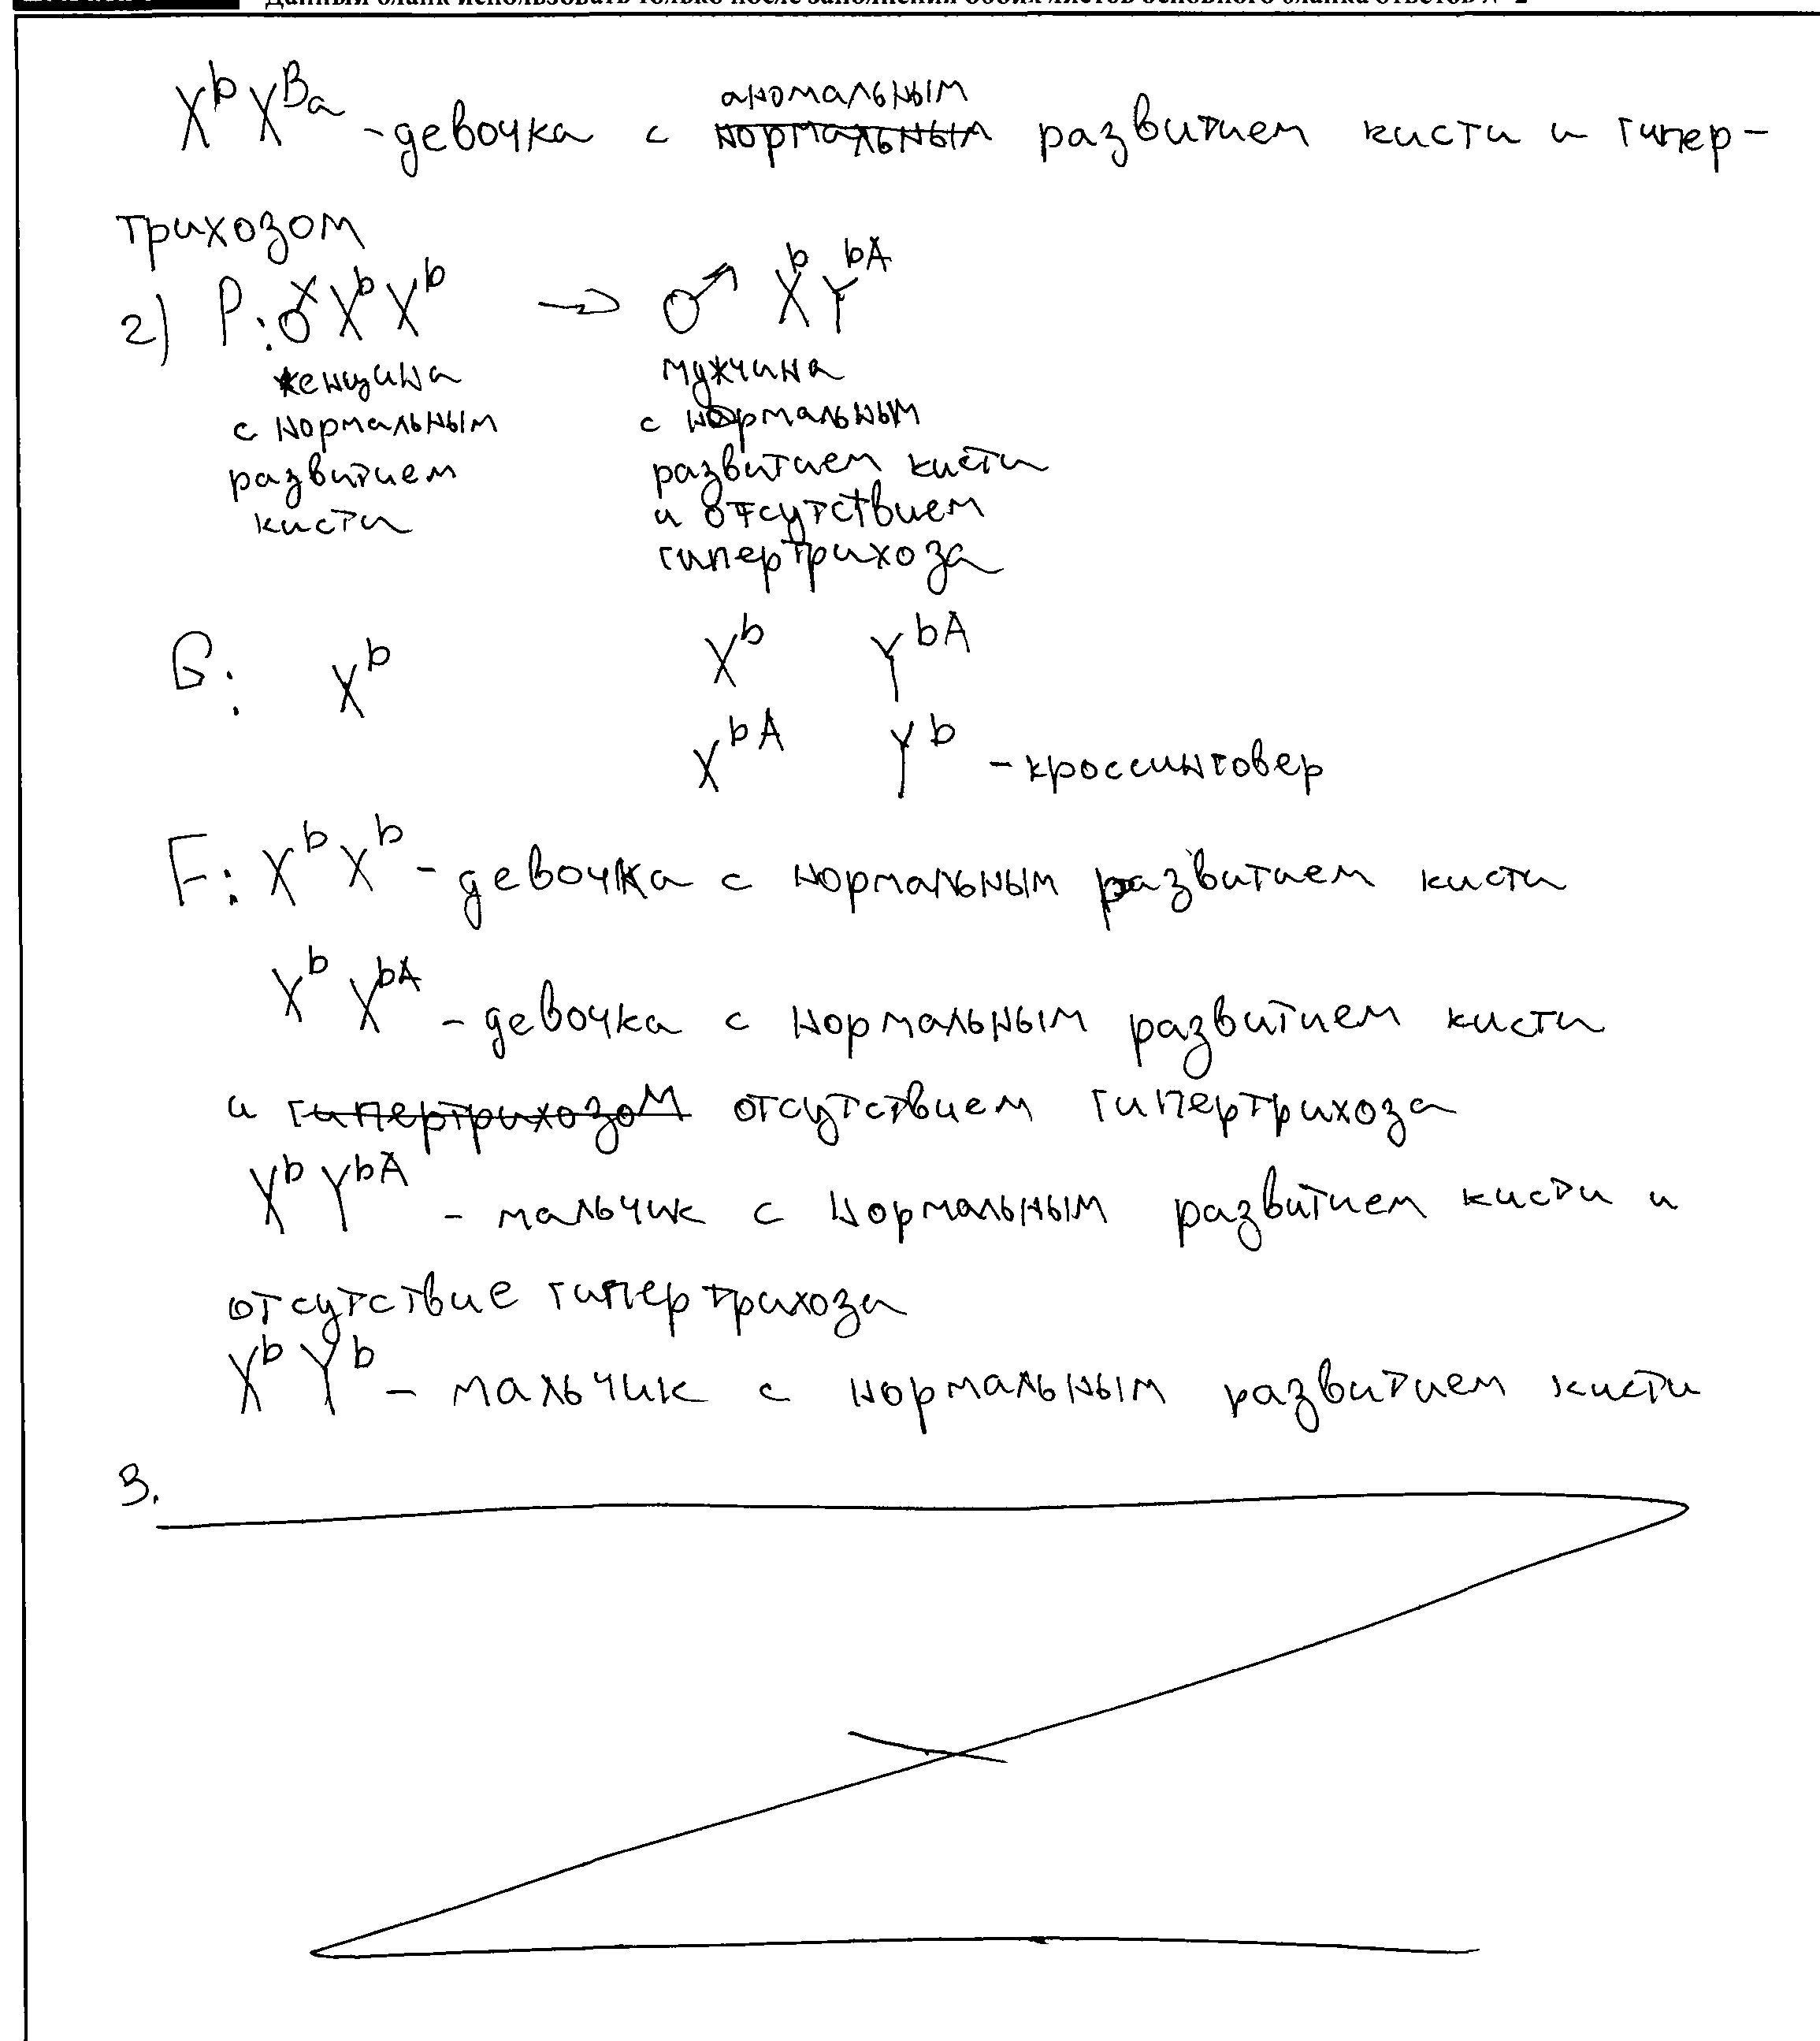 Данный бланк использовать только после заполнения обоих листов основного бланка ответов № 2
аномальным
X^b X^Ba - девочка с нормальным развитием кисти и гипер-
трихозом
2) P: X^b X^b → ♂ X^b Y^bA
женщина мужчина
с нормальным с нормальным
развитием развитием кисти
кисти и отсутствием
гипертрихоза
G: X^b X^b Y^bA
X^bA Y^b - кроссинговер
F: X^b X^b - девочка с нормальным развитием кисти
X^b X^bA - девочка с нормальным развитием кисти
и гипертрихозом отсутствием гипертрихоза
X^b Y^bA - мальчик с нормальным развитием кисти и
отсутствие гипертрихоза
X^b Y^b - мальчик с нормальным развитием кисти
3.